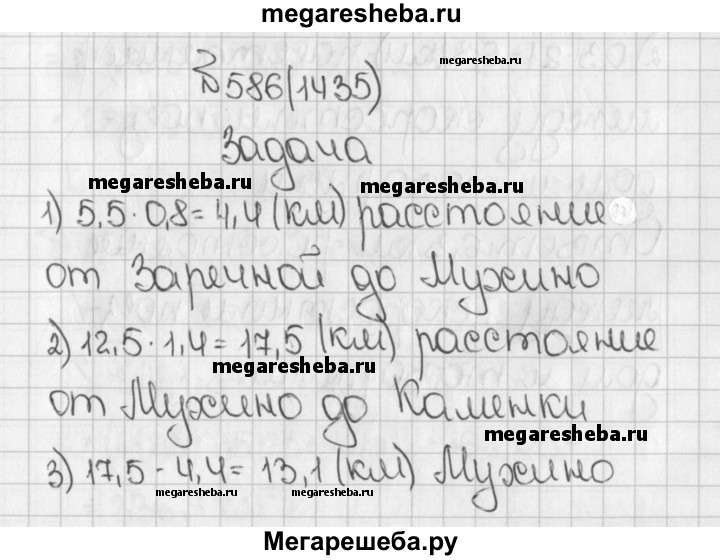 megaresheba.ru
megaresheba.ru
№586(1435)
Задача
megaresheba.ru
megaresheba.ru
1) 5,5 · 0,8 = 4,4 (км) расстояние
от Заречной до Мухино
2) 12,5 · 1,4 = 17,5 (км) расстояние
megaresheba.ru
от Мухино до Каменки
megaresheba.ru
3) 17,5 - 4,4 = 13,1 (км) Мухино
megaresheba.ru
megaresheba.ru
Мегарешеба.ру